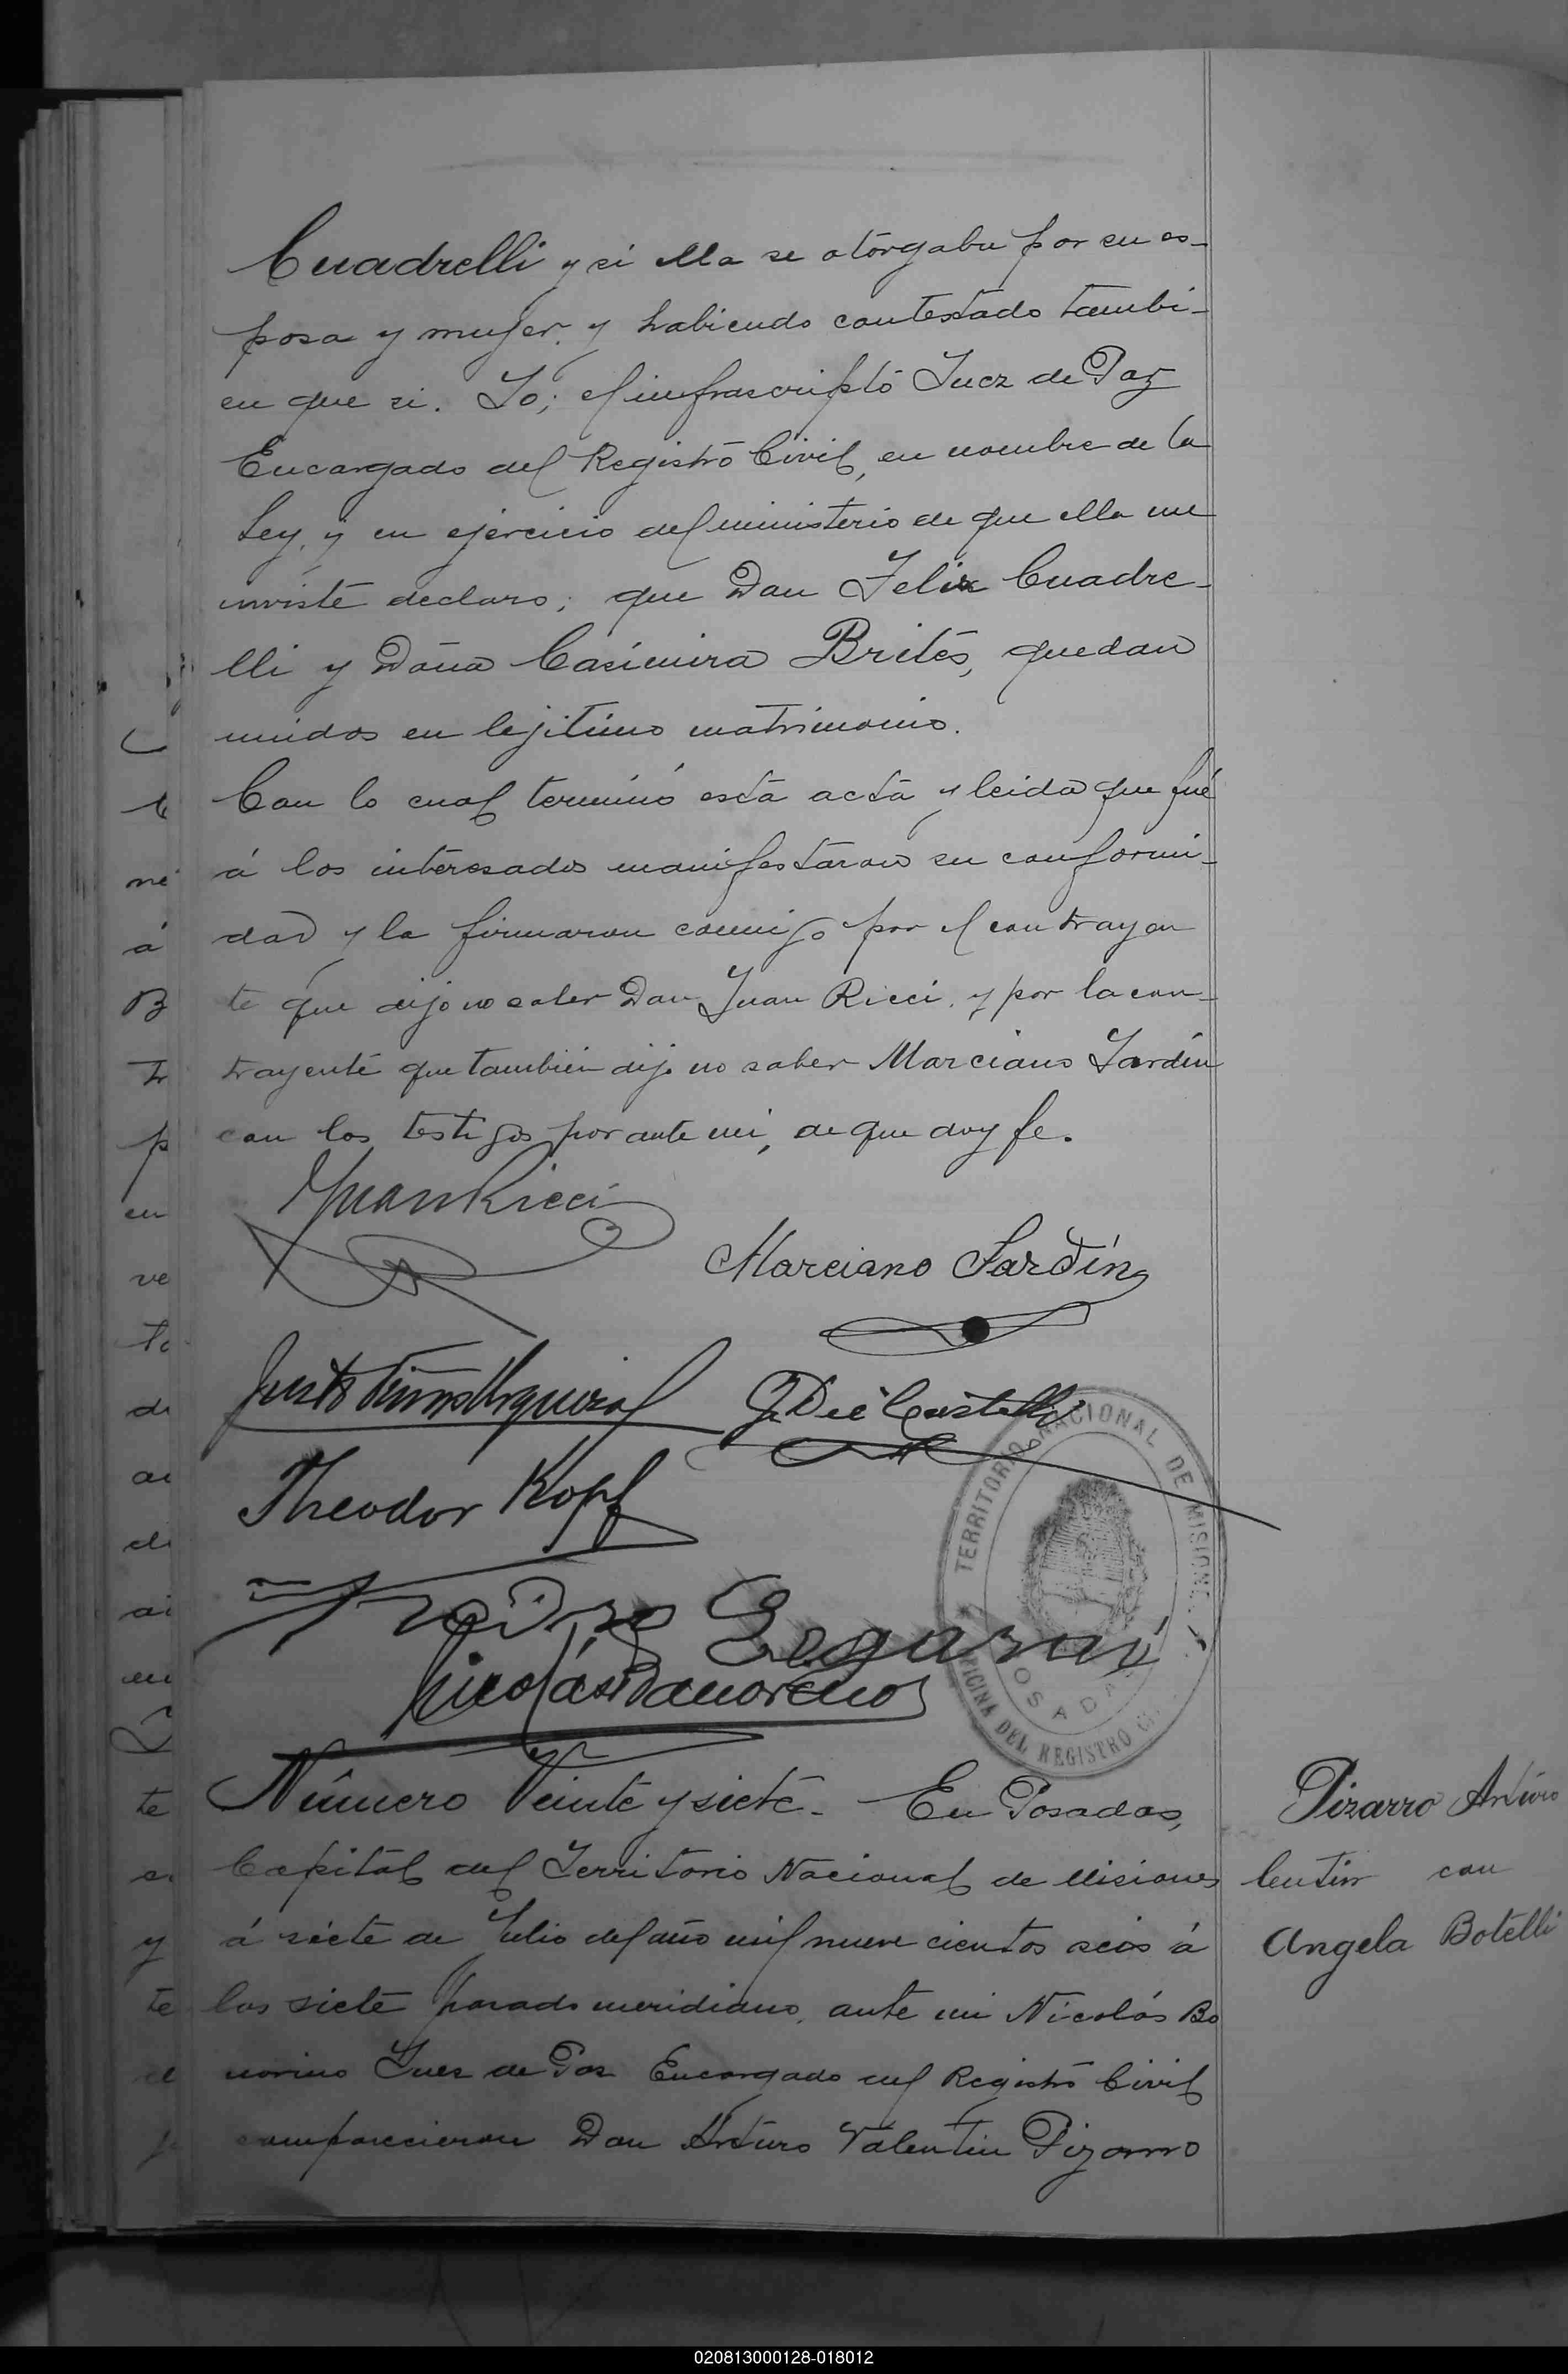 Cuadrelli y si ella se otorgaba por su es-
posa y mujer, y habiendo contestado tambi-
en que si. Yo; el infrascripto Juez de Paz
Encargado del Registro Civil, en nombre de la
Ley, y en ejercicio del ministerio de que ella me
inviste declaro; que Don Felix Cuadre-
lli y Doña Casimira Brites, quedan
unidos en lejitimo matrimonio.
Con lo cual terminó esta acta y leida que fué
á los interesados manifestaron su conformi-
dad y la firmaron conmigo por el contrayen
te que dijo no saber Don Juan Ricci, y por la con-
trayente que también dijo no saber Marciano Jardin
con los testigos por ante mi, de que doy fe.
Juan Ricci
Marciano Jardín
Justo
J. Dei Castelli
Theodor Kopf
TERRITORIO NACIONAL DE MISIONES
OFICINA DEL REGISTRO CIVIL
POSADAS
Nicolás Bonorino
Número Veinte y siete. En Posadas,
Capital del Territorio Nacional de Misiones
á siete de Julio del año mil nueve cientos seis á
las siete pasado meridiano, ante mi Nicolás Bo
norino Juez de Paz Encargado del Registro Civil
comparecieron Don Arturo Valentin Pizarro
Pizarro Arturo
lentin con
Angela Botelli
020813000128-018012